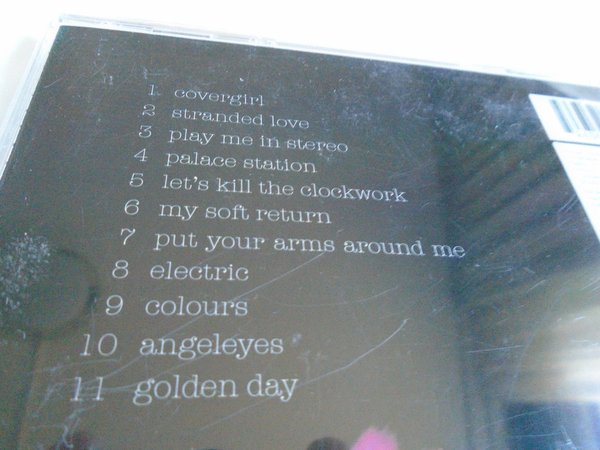 1 covergirl
2 stranded love
3 play me in stereo
4 palace station
5 let's kill the clockwork
6 my soft return
7 put your arms around me
8 electric
9 colours
10 angeleyes
11 golden day